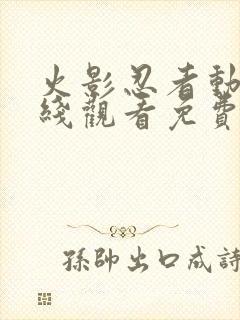 火影忍者動
綫觀看免費
孫帥出口成詩